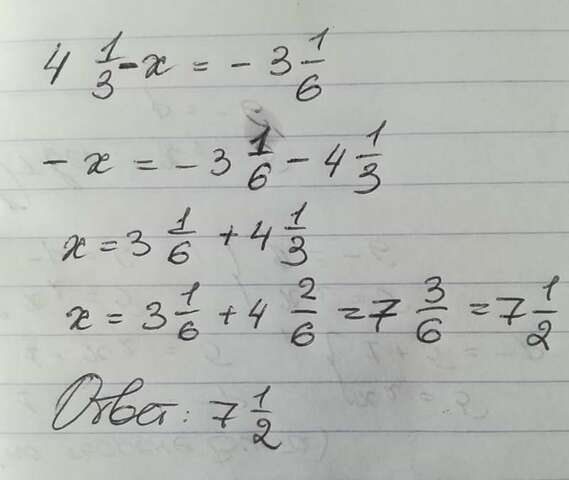 4 1/3 - x = - 3 1/6
- x = - 3 1/6 - 4 1/3
x = 3 1/6 + 4 1/3
x = 3 1/6 + 4 2/6 = 7 3/6 = 7 1/2
Ответ: 7 1/2